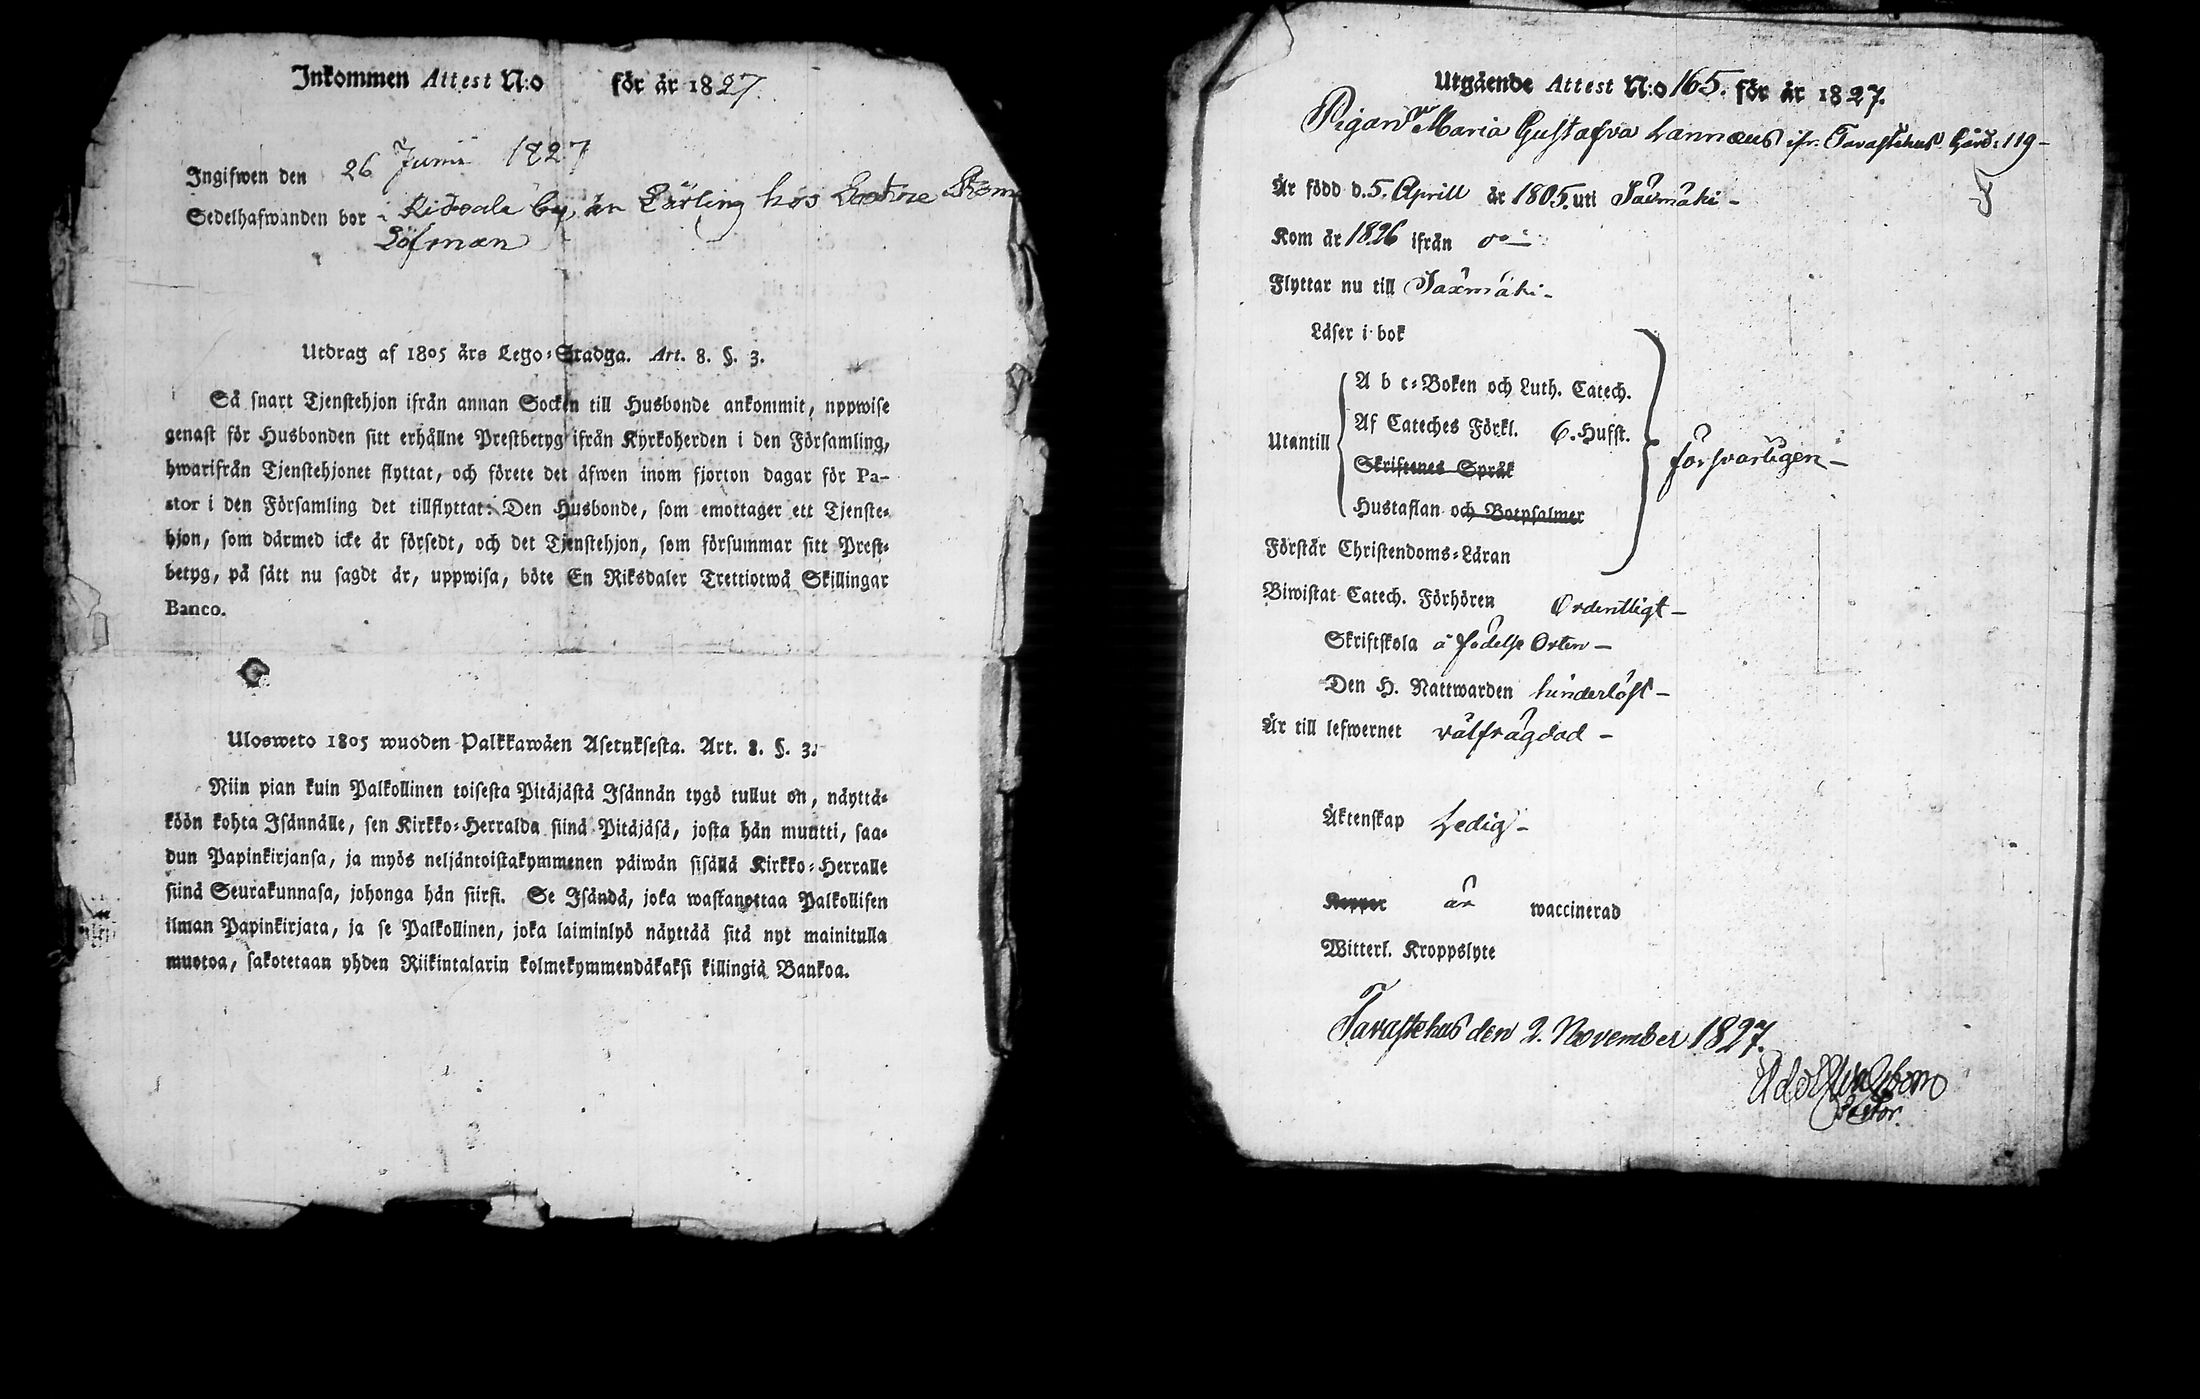 Inkommen Attest N:o för år 1827
Ingifwen den 26 Junii 1827
Sedelhafwanden bor i by, är Lärling hos
Löfman
Utdrag af 1805 års Lego-Stadga. Art. 8. §. 3.
Så snart Tjenstehjon ifrån annan Socken till Husbonde ankommit, uppwise
genast för Husbonden sitt erhållne Prestbetyg ifrån Kyrkoherden i den Församling,
hwarifrån Tjenstehjonet flyttat, och förete det äfwen inom fjorton dagar för Pa-
stor i den Församling det tillflyttat: Den Husbonde, som emottager ett Tjenste-
hjon, som därmed icke är försedt, och det Tjenstehjon, som försummar sitt Prest-
betyg, på sätt nu sagdt är, uppwisa, böte En Riksdaler Trettiotwå Skillingar
Banco.
Ulosweto 1805 wuoden Palkkawäen Asetuksesta. Art. 8. §. 3.
Niin pian kuin Palkollinen toisesta Pitäjästä Isännän tygö tullut on, näyttä-
köön kohta Isännälle, sen Kirkko-Herralda siinä Pitäjäsä, josta hän muutti, saa-
dun Papinkirjansa, ja myös neljäntoistakymmenen päiwän sisällä Kirkko-Herralle
siinä Seurakunnasa, johonga hän siirsi. Se Isändä, joka wastanottaa Palkollisen
ilman Papinkirjata, ja se Palkollinen, joka laiminlyö näyttää sitä nyt mainitulla
muotoa, sakotetaan yhden Riikintalarin kolmekymmendäkaksi killingiä Bankoa.
Utgående Attest N:o 165. för år 1827.
Pigan Maria Gustafva Lannæus ifr. Tavastehus Gård: 119-
Är född d. 5. Aprill år 1805. uti Säxmäki-
Kom år 1826 ifrån do-
Flyttar nu till Saxmäki-
Läser i bok
A b c-Boken och Luth. Catech.
Af Cateches Förkl. 6. Hufst.
Utantill
Skriftenes Språk
försvarligen-
Hustaflan och Botpsalmer
Förstår Christendoms-Läran
Biwistat Catech. Förhören Ordentligt-
Skriftskola å födelse Orten-
Den H. Nattwarden hinderlöst-
Är till lefwernet välfrägdad-
Äktenskap Ledig-
Koppor är waccinerad
Witterl. Kroppslyte
Tavastehus den 2. November 1827.
Pastor.